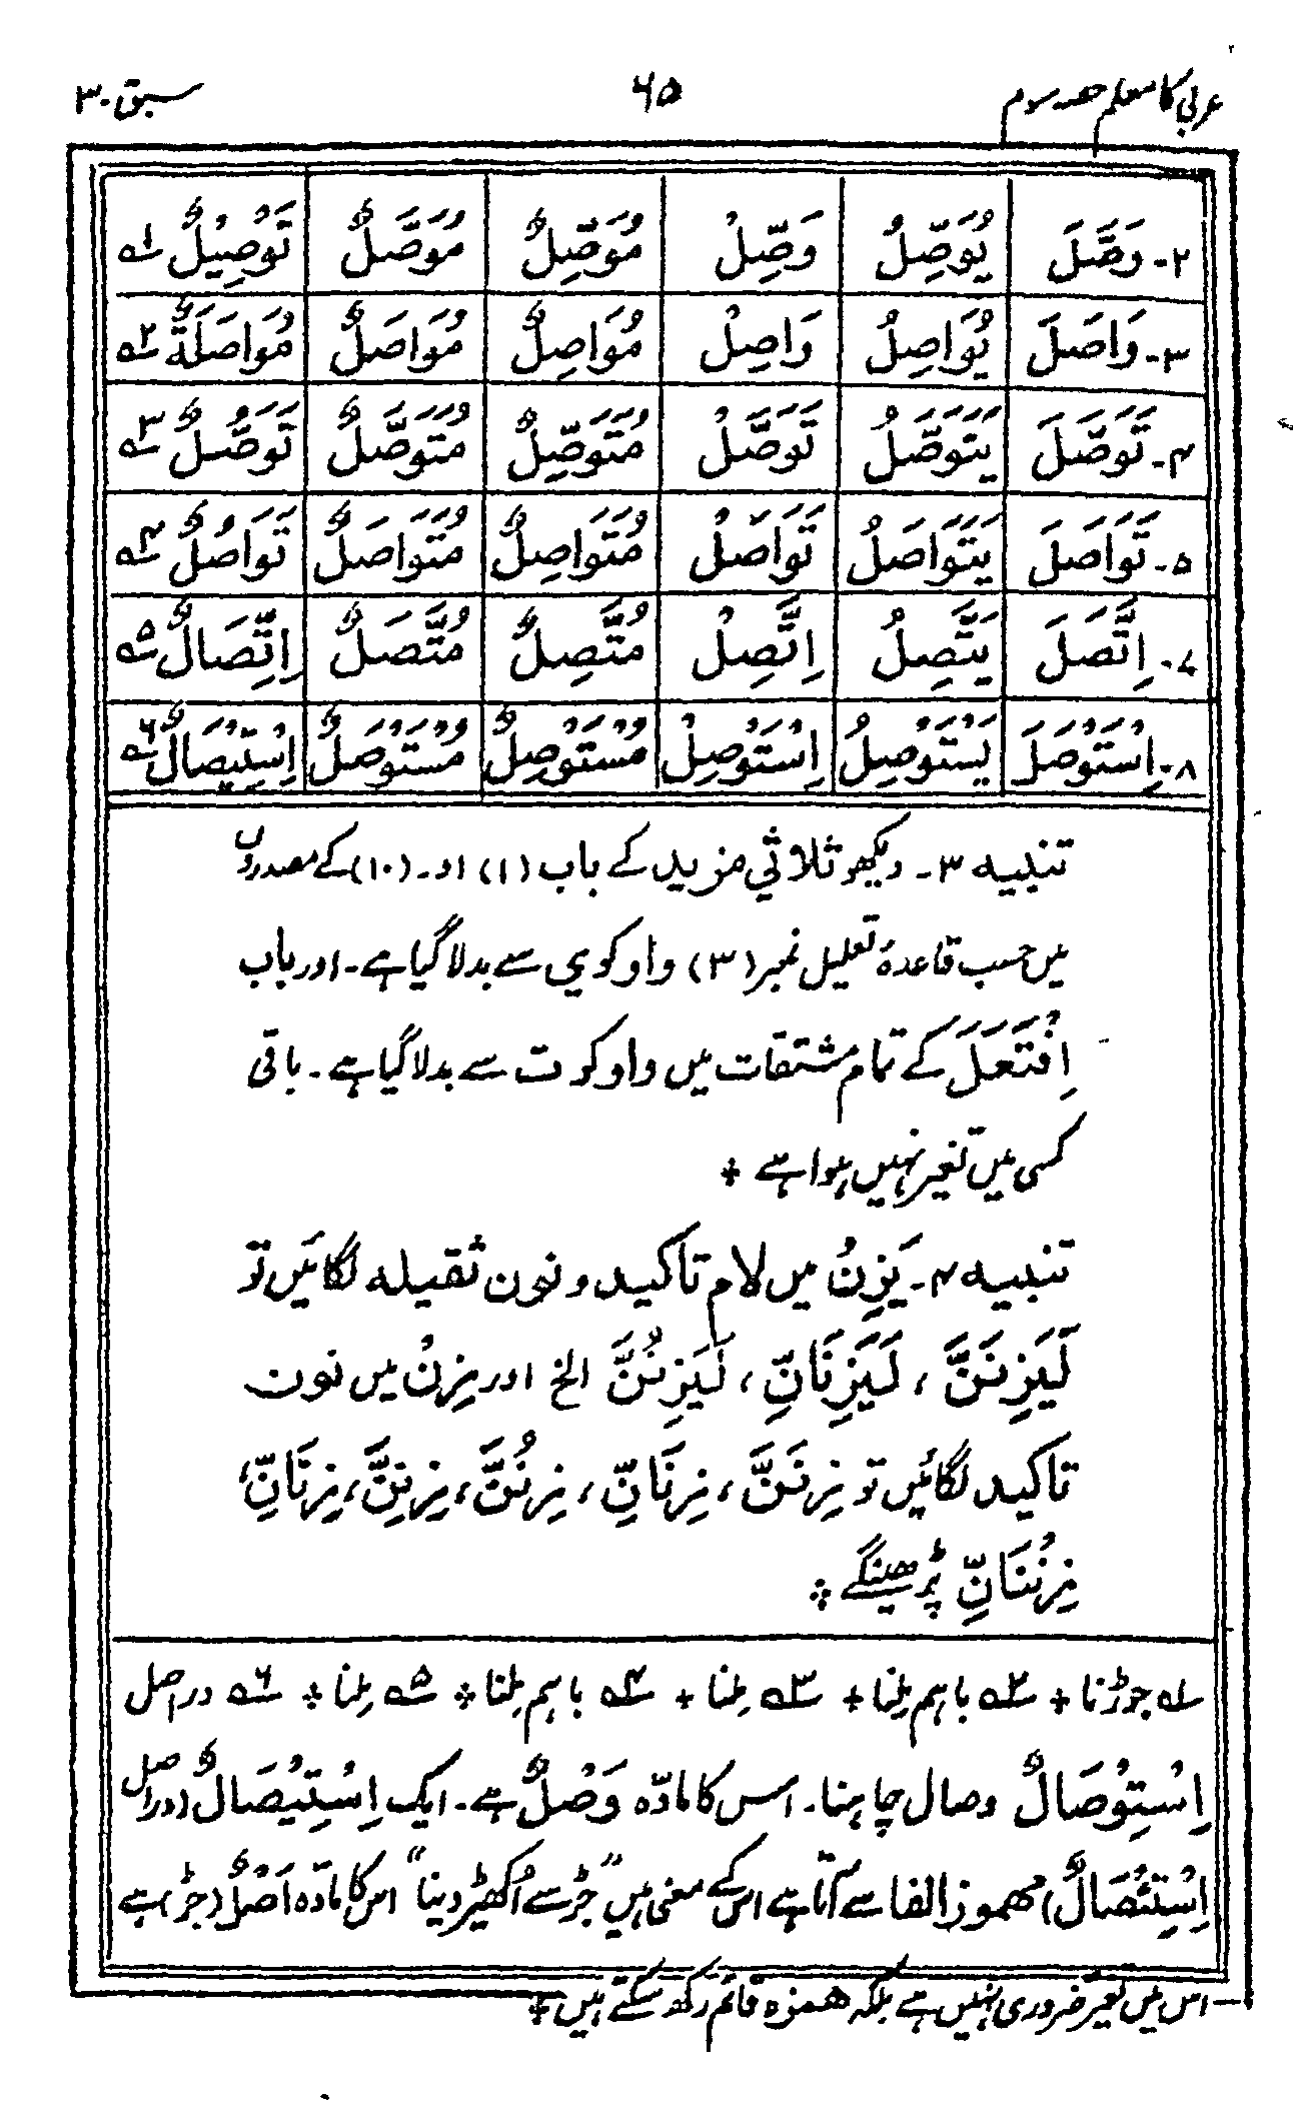 عربی کا معلم حصہ سوم ۶۵ سبق ۳۰
۲- وَصَّلَ يُوَصِّلُ وَصِّلْ مُوَصِّلٌ مُوَصَّلٌ تَوْصِيْلٌ ؎۱
۳- وَاصَلَ يُوَاصِلُ وَاصِلْ مُوَاصِلٌ مُوَاصَلٌ مُوَاصَلَةٌ ؎۲
۴- تَوَصَّلَ يَتَوَصَّلُ تَوَصَّلْ مُتَوَصِّلٌ مُتَوَصَّلٌ تَوَصُّلٌ ؎۳
۵- تَوَاصَلَ يَتَوَاصَلُ تَوَاصَلْ مُتَوَاصِلٌ مُتَوَاصَلٌ تَوَاصُلٌ ؎۴
۷- اِتَّصَلَ يَتَّصِلُ اِتَّصِلْ مُتَّصِلٌ مُتَّصَلٌ اِتِّصَالٌ ؎۵
۸- اِسْتَوْصَلَ يَسْتَوْصِلُ اِسْتَوْصِلْ مُسْتَوْصِلٌ مُسْتَوْصَلٌ اِسْتِيْصَالٌ ؎۶
تنبیہ ۳- دیکھو ثلاثی مزید کے باب (۱) اور (۱۰) کے مصدروں
میں حسب قاعدۂ تعلیل نمبر (۳) واو کو ي سے بدلا گیا ہے۔ اور باب
اِفْتَعَلَ کے تمام مشتقات میں واو کو ت سے بدلا گیا ہے۔ باقی
کسی میں تغیر نہیں ہوا ہے +
تنبیہ ۴- يَزِنُ میں لام تاکید و نون ثقیلہ لگائیں تو
لَيَزِنَنَّ، لَيَزِنَانِّ، لَيَزِنُنَّ الخ اور زِنْ میں نون
تاکید لگائیں تو زِنَنَّ، زِنَانِّ، زِنُنَّ، زِنِنَّ، زِنَانِّ،
زِنْنَانِّ پڑھینگے +
؎۱ جوڑنا + ؎۲ باہم ملنا + ؎۳ ملنا + ؎۴ باہم ملنا + ؎۵ ملنا + ؎۶ دراصل
اِسْتِوْصَالٌ وصال چاہنا۔ اس کا مادّہ وَصْلٌ ہے۔ ایک اِسْتِيْصَالٌ (دراصل
اِسْتِئْصَالٌ) مہموز الفا سے آتا ہے اس کے معنی ہیں "جڑ سے اُکھیڑ دینا" اس کا مادّہ اَصْلٌ (جڑ) ہے
اس میں تغیّر ضروری نہیں ہے بلکہ ھمزہ قائم رکھ سکتے ہیں +